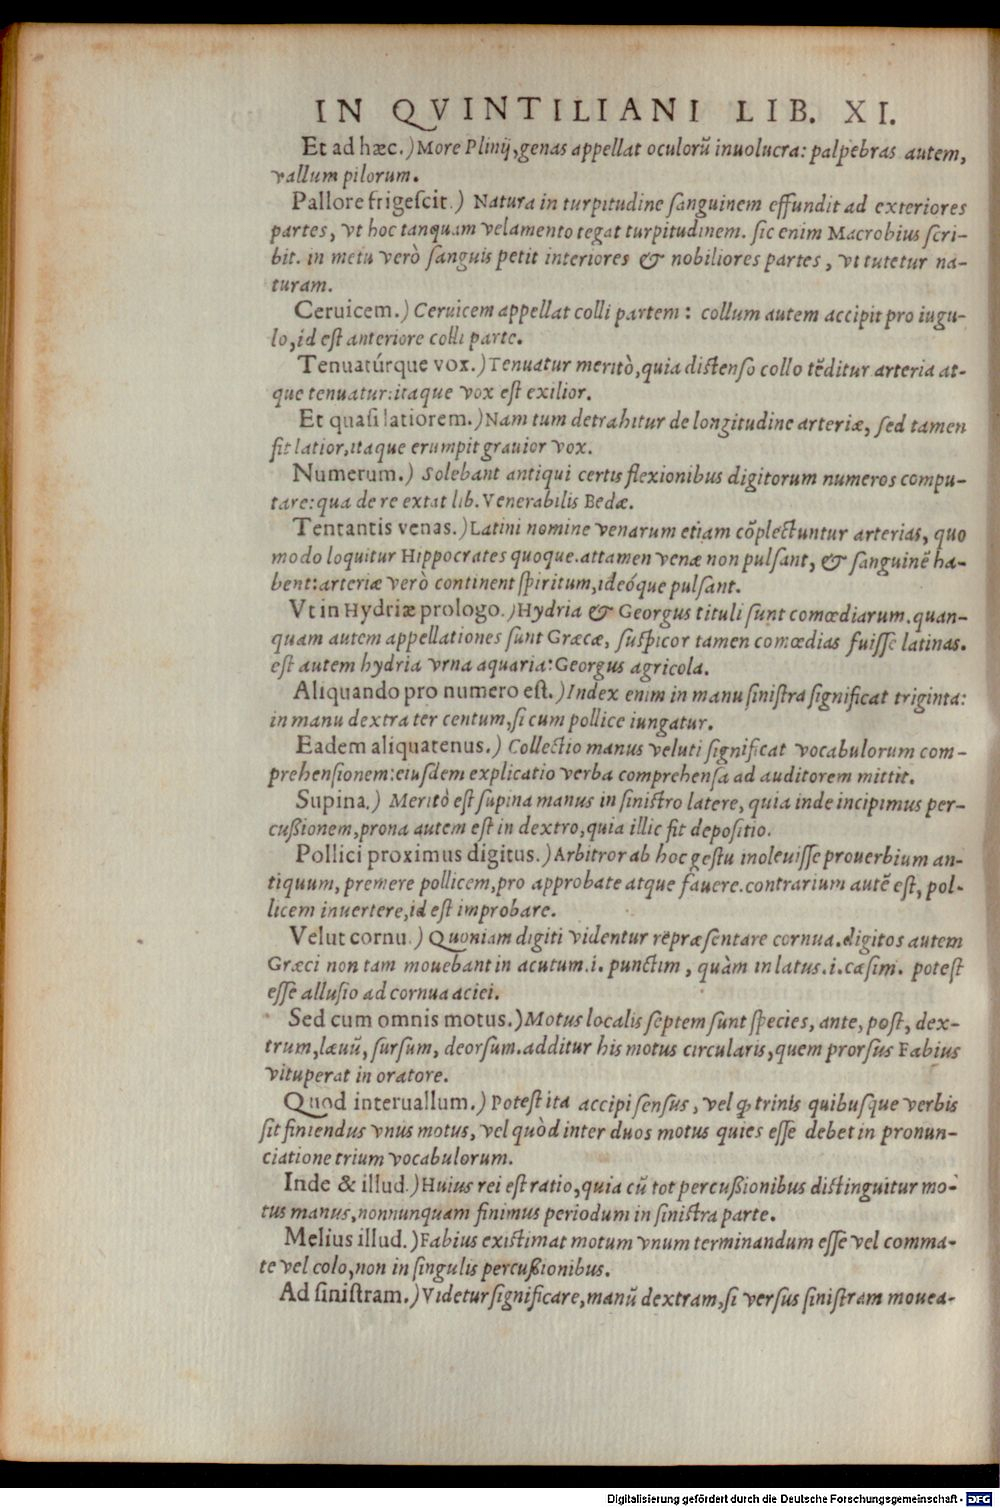 IN QVINTILIANI LIB. XI.
Et ad hæc.) More Plinij, genas appellat oculorũ inuolucra: palpebras autem,
vallum pilorum.
Pallore frigeſcit.) Natura in turpitudine ſanguinem effundit ad exteriores
partes, vt hoc tanquam velamento tegat turpitudinem. ſic enim Macrobius ſcri-
bit. in metu verò ſanguis petit interiores & nobiliores partes, vt tutetur na-
turam.
Ceruicem.) Ceruicem appellat colli partem: collum autem accipit pro iugu-
lo, id eſt anteriore colli parte.
Tenuatúrque vox.) Tenuatur meritò, quia diſtenſo collo tẽditur arteria at-
que tenuatur: itaque vox eſt exilior.
Et quaſi latiorem.) Nam tum detrahitur de longitudine arteriæ, ſed tamen
fit latior, itaque erumpit grauior vox.
Numerum.) Solebant antiqui certis flexionibus digitorum numeros compu-
tare: qua de re extat lib. Venerabilis Bedæ.
Tentantis venas.) Latini nomine venarum etiam cõplectuntur arterias, quo
modo loquitur Hippocrates quoque. attamen venæ non pulſant, & ſanguinẽ ha-
bent: arteriæ verò continent ſpiritum, ideóque pulſant.
Vt in Hydriæ prologo.) Hydria & Georgus tituli ſunt comœdiarum. quan-
quam autem appellationes ſunt Græcæ, ſuſpicor tamen comœdias fuiſſe latinas.
eſt autem hydria vrna aquaria: Georgus agricola.
Aliquando pro numero eſt.) Index enim in manu ſiniſtra ſignificat triginta:
in manu dextra ter centum, ſi cum pollice iungatur.
Eadem aliquatenus.) Collectio manus veluti ſignificat vocabulorum com-
prehenſionem: eiuſdem explicatio verba comprehenſa ad auditorem mittit.
Supina.) Meritò eſt ſupina manus in ſiniſtro latere, quia inde incipimus per-
cußionem, prona autem eſt in dextro, quia illic fit depoſitio.
Pollici proximus digitus.) Arbitror ab hoc geſtu inoleuiſſe prouerbium an-
tiquum, premere pollicem, pro approbate atque fauere. contrarium autẽ eſt, pol-
licem inuertere, id eſt improbare.
Velut cornu.) Quoniam digiti videntur repræſentare cornua. digitos autem
Græci non tam mouebant in acutum .i. punctim, quàm in latus .i. cæſim. poteſt
eſſe alluſio ad cornua aciei.
Sed cum omnis motus.) Motus localis ſeptem ſunt ſpecies, ante, poſt, dex-
trum, læuũ, ſurſum, deorſum. additur his motus circularis, quem prorſus Fabius
vituperat in oratore.
Quod interuallum.) Poteſt ita accipi ſenſus, vel ꝙ trinis quibuſque verbis
ſit finiendus vnus motus, vel quòd inter duos motus quies eſſe debet in pronun-
ciatione trium vocabulorum.
Inde & illud.) Huius rei eſt ratio, quia cũ tot percußionibus diſtinguitur mo-
tus manus, nonnunquam finimus periodum in ſiniſtra parte.
Melius illud.) Fabius exiſtimat motum vnum terminandum eſſe vel comma-
te vel colo, non in ſingulis percußionibus.
Ad ſiniſtram.) Videtur ſignificare, manũ dextram, ſi verſus ſiniſtram mouea-
Digitalisierung gefördert durch die Deutsche Forschungsgemeinschaft - DFG